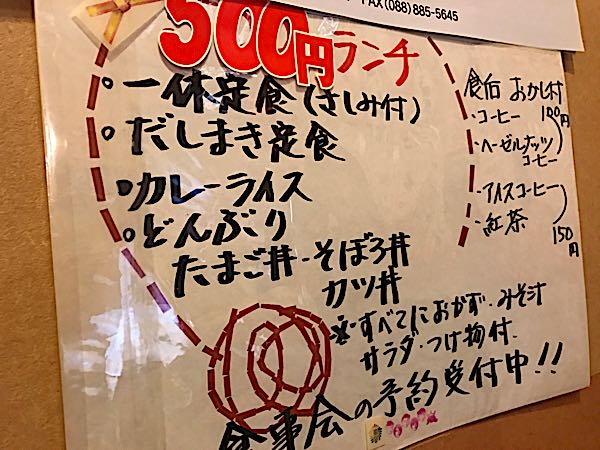 FAX(088)885-5645
500円ランチ
一休定食(さしみ付)
だしまき定食
カレーライス
どんぶり
たまご丼・そぼろ丼
カツ丼
※すべてにおかず・みそ汁
サラダ・つけ物付
食事会の予約受付中!!
食后 おかし付
・コーヒー 100円
・ヘーゼルナッツ
コーヒー
・アイスコーヒー
・紅茶
150円